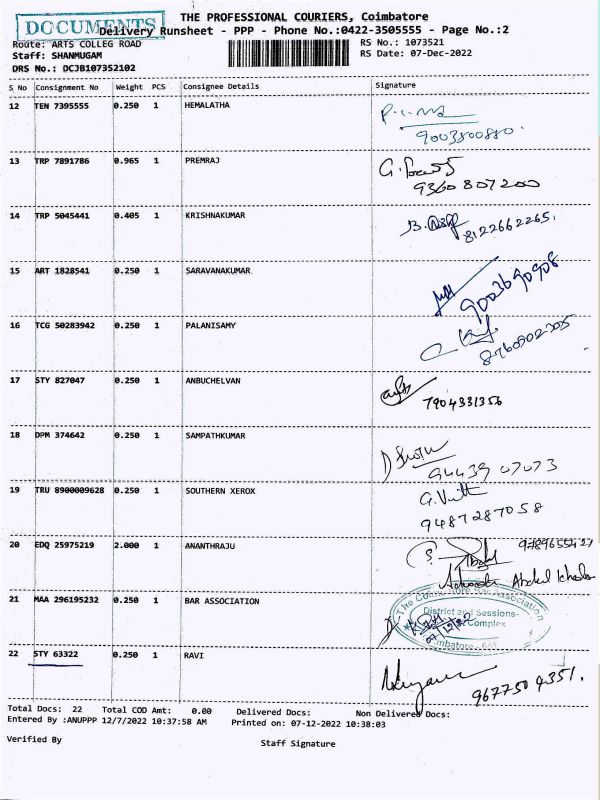 THE PROFESSIONAL COURIERS, Coimbatore
DOCUMENTS
Delivery Runsheet - PPP - Phone No.:0422-3505555 - Page No.:2
Route: ARTS COLLEG ROAD RS No.: 1073521
Staff: SHANMUGAM RS Date: 07-Dec-2022
DRS No.: DCJB107352102
S No Consignment No Weight PCS Consignee Details Signature
12 TEN 7395555 0.250 1 HEMALATHA
9003500880.
13 TRP 7891786 0.965 1 PREMRAJ
9360807200
14 TRP 5045441 0.405 1 KRISHNAKUMAR
8122662265.
15 ART 1828541 0.250 1 SARAVANAKUMAR
9003690908
16 TCG 50283942 0.250 1 PALANISAMY
17 STY 827047 0.250 1 ANBUCHELVAN
7904331356
18 DPM 374642 0.250 1 SAMPATHKUMAR
94439 07073
19 TRU 8900009628 0.250 1 SOUTHERN XEROX
9487287058
20 EDQ 25975219 2.000 1 ANANTHRAJU
21 MAA 296195232 0.250 1 BAR ASSOCIATION
The Coimbatore Bar Association
District and Sessions
Complex
22 STY 63322 0.250 1 RAVI
9677504351.
Total Docs: 22 Total COD Amt: 0.00 Delivered Docs: Non Delivered Docs:
Entered By :ANUPPP 12/7/2022 10:37:58 AM Printed on: 07-12-2022 10:38:03
Verified By Staff Signature